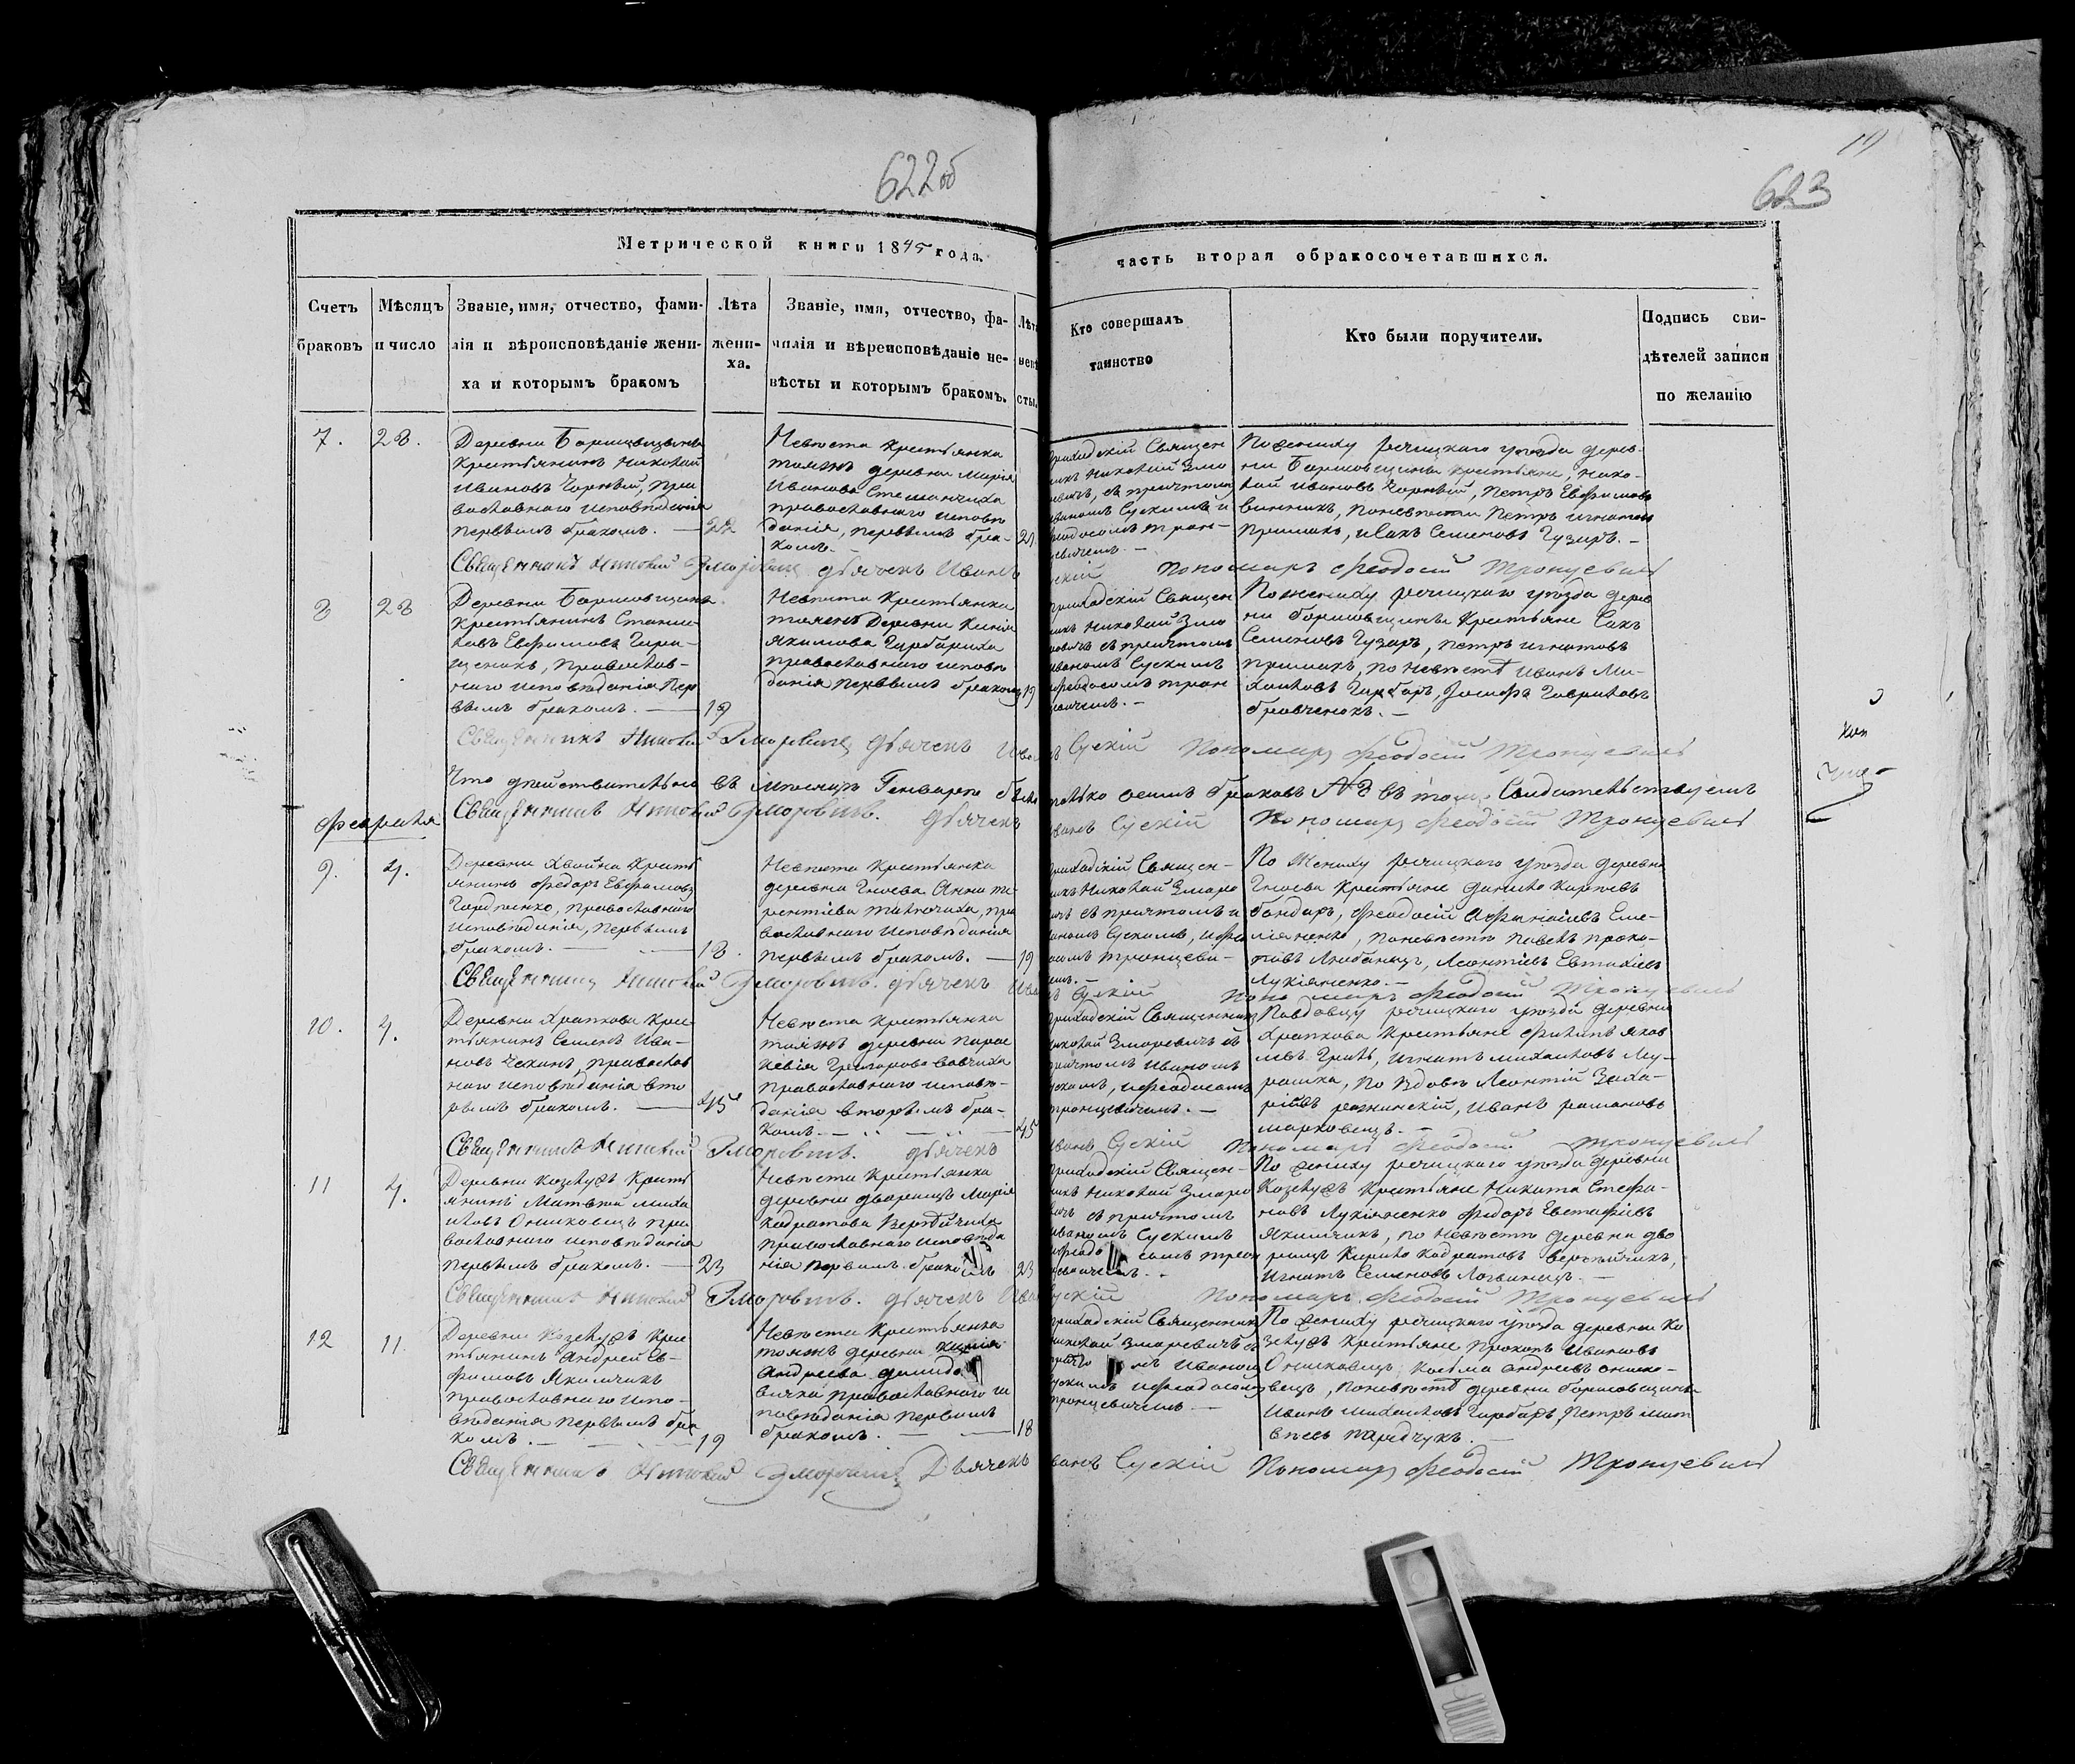 622об
19
623
Метрической книги 1845 года.
часть вторая о бракосочетавшихся.
Счетъ
браковъ
Мѣсяцъ
и число
Званіе, имя, отчество, фами-
лія и вѣроисповѣданіе жени-
ха и которымъ бракомъ
Лѣта
жени-
ха.
Званіе, имя, отчество, фа-
милія и вѣроисповѣданіе не-
вѣсты и которымъ бракомъ.
Лѣта
невѣ
сты.
Кто совершалъ
таинство
Кто были поручители.
Подпись сви-
дѣтелей записи
по желанію
7.
28.
Деревни Борисовщины
Крестьянинъ Николай
Ивановъ Чорный, Пра
вославнаго исповѣданія
первымъ бракомъ. —
22
Невѣста Крестьянка
таяжъ деревни Марія
Иванова
православнаго исповѣ
данія, первымъ бра-
комъ. —
21
приходскій Священ
никъ Николай Змо
съ причтомъ
Иваномъ Сускимъ и
Феодосомъ Трон-
цевичемъ. —
По жениху рѣчицкаго уѣзда дерев
ни Борисовщины крестьяне, Нико-
лай Ивановъ Чорный, Петръ Евфимовъ
Винникъ, по невѣсти Петръ Игнатовъ
Примакъ, Исакъ Семеновъ Гузаръ. —
Священникъ Николай Зморовичъ дьячекъ Иванъ
Сускій Пономарь Феодосій Тронцевичъ
8
28
Деревни Борисовщины
Крестьянинъ Стани-
лавъ Евфимовъ
Православ-
наго исповѣданія Пер
вымъ бракомъ. —
19
Невѣста Крестьянка
таяжъ Деревни Ксенія
Якимова Гарбариха
православнаго исповѣ
данія первымъ бракомъ
19
приходскій Священ
никъ Николай Змо
ровичъ съ причтомъ
Иваномъ Сускимъ
Феодосомъ Трон
цевичемъ. —
По жениху рѣчицкаго уѣзда дерев
ни Борисовщины Крестьяне Сакъ
Семеновъ Гузаръ, Петръ Игнатовъ
Примакъ, по невѣстѣ Иванъ Ми-
хайловъ Гарбаръ, Іосифъ Гавриловъ
Кравченокъ. —
Священникъ Николай Зморовичъ дьячекъ Иванъ
Сускій Пономарь Феодосій Тронцевичъ
Что дѣйствительно въ мѣсяцѣ Генварѣ было
только осемъ браковъ № 8 въ томъ Свидѣтельствуемъ
Священникъ Николай Зморовичъ. дьячекъ
Иванъ Сускій Пономарь Феодосій Тронцевичъ
Февраля
9.
4.
Деревни Хвойна Кресть
янинъ Федоръ Евфимовъ
Гордѣенко, православнаго
исповѣданія, первымъ
бракомъ. —
18.
Невѣста Крестьянка
деревни Гноева Анна Те-
рентіева, пра
вославнаго исповѣданія
первымъ бракомъ. —
19
приходскій Священ-
никъ Николай Зморо
вичъ съ причтомъ и
Иваномъ Сускимъ, и Фео
досомъ Тронцеви-
чемъ. —
По Жениху рѣчицкаго уѣзда деревни
Гноева Крестьяне Данило Карповъ
Бондаръ, Феодосій Афанасіевъ Еме-
ліяненко, по невѣсти Павелъ Проко-
повъ, Леонтіевъ Евтихіевъ
Лукіяненко. —
Священникъ Николай Зморовичъ. дьячекъ Иванъ
Сускій Пономарь Феодосій Тронцевичъ
10.
4.
Деревни Храпкова Крес-
тьянинъ Семенъ Ива-
новъ Чеканъ, православ
наго исповѣданія вто
рымъ бракомъ. —
45
Невѣста Крестьянка
таяжъ деревни Парас
кевія Григорова Вовчиха
православнаго исповѣ-
данія вторымъ бра-
комъ. —
45
приходскій Священникъ
Николай Зморовичъ съ
причтомъ Иваномъ
Сускимъ, и Феодосомъ
Тронцевичемъ. —
По вдовцу рѣчицкаго уѣзда деревни
Храпкова Крестьяне Филипъ Яков
левъ, Игнатъ Михайловъ Му-
рашка, по вдовѣ Леонтій Заха-
ріевъ, Иванъ Романовъ
Марковецъ. —
Священникъ Николай Зморовичъ. дьячекъ
Иванъ Сускій Пономарь Феодосій Тронцевичъ
11
4.
Деревни Козелужъ Кресть
янинъ Матвѣй Миха
иловъ Ониковецъ пра
вославнаго исповѣданія
первымъ бракомъ. —
23
Невѣста Крестьянка
деревни Дворищъ Марія
Кадратова
православнаго исповѣда
нія первымъ бракомъ
23
приходскій Священ-
никъ Николай Зморо
вичъ съ причтомъ
Иваномъ Сускимъ
Феодосомъ Трон
цевичемъ. —
По жениху рѣчицкаго уѣзда деревни
Козелужъ Крестьяне Никита Стефа-
новъ Лукіяненко Федоръ Евстафіевъ
Якимчикъ, по невѣсти деревни Дво
рищъ Кирило Кадратовъ,
Игнатъ Семеновъ Логвинецъ. —
Священникъ Николай Зморовичъ. дьячекъ Иванъ
Сускій Пономарь Феодосій Тронцевичъ
12
11.
Деревни Козелужъ Крес
тьянинъ Андрей Ев-
фимовъ Якимчикъ
православнаго испо-
вѣданія первымъ бра
комъ. —
19
Невѣста Крестьянка
таяжъ деревни Ксенія
Андреева
православнаго ис
повѣданія первымъ
бракомъ. —
18
приходскій Священникъ
Николай Зморовичъ съ
причтомъ Иваномъ
Сускимъ и Феодосомъ
Тронцевичемъ. —
По жениху рѣчицкаго уѣзда деревни Ко
зелужъ Крестьяне Прокопъ Ивановъ
Ониковецъ, Козьма Андреевъ Онико-
вецъ, по невѣстѣ деревни Борисовщины
Иванъ Михайловъ Гарбаръ, Петръ Мат
вѣевъ. —
Священникъ Николай Зморовичъ Дьячекъ
Иванъ Сускій Пономарь Феодосій Тронцевичъ